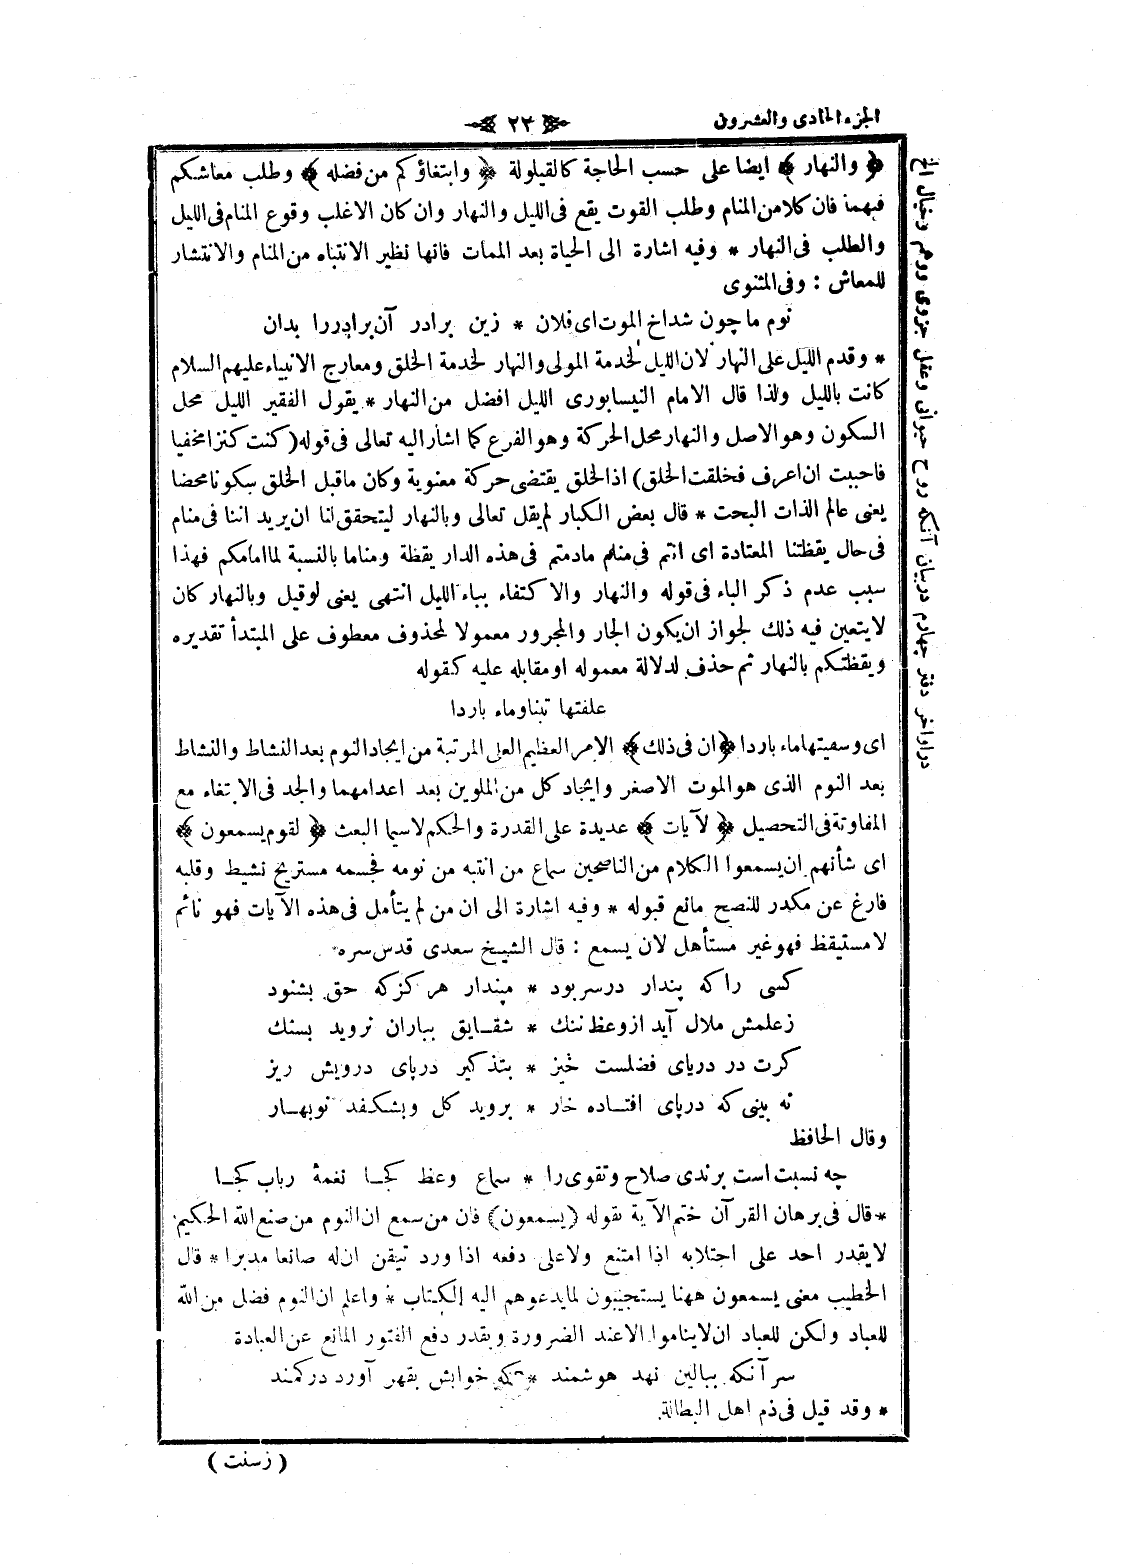 الجزء الحادى والعشرون
٢٣
﴿ والنهار ﴾ ايضا على حسب الحاجة كالقيلولة ﴿ وابتغاؤكم من فضله ﴾ وطلب معاشكم
فيهما فان كلا من المنام وطلب القوت يقع فى الليل والنهار وان كان الاغلب وقوع المنام فى الليل
والطلب فى النهار * وفيه اشارة الى الحياة بعد الممات فانها نظير الانتباه من المنام والانتشار
للمعاش : وفى المثنوى
نوم ما چون شد اخ الموت اى فلان * زين برادر آن برادر را بدان
* وقدم الليل على النهار لان الليل لخدمة المولى والنهار لخدمة الخلق ومعارج الانبياء عليهم السلام
كانت بالليل ولذا قال الامام النيسابورى الليل افضل من النهار * يقول الفقير الليل محل
السكون وهو الاصل والنهار محل الحركة وهو الفرع كما اشار اليه تعالى فى قوله (كنت كنزا مخفيا
فاحببت ان اعرف فخلقت الخلق) اذ الخلق يقتضى حركة معنوية وكان ما قبل الخلق سكونا محضا
يعنى عالم الذات البحت * قال بعض الكبار لم يقل تعالى وبالنهار ليتحقق لنا ان يريد اننا فى منام
فى حال يقظتنا المعتادة اى انتم فى منام مادمتم فى هذه الدار يقظة ومناما بالنسبة لما امامكم فهذا
سبب عدم ذكر الباء فى قوله والنهار والاكتفاء بباء الليل انتهى يعنى لوقيل وبالنهار كان
لا يتعين فيه ذلك لجواز ان يكون الجار والمجرور معمولا لمحذوف معطوف على المبتدأ تقديره
ويقظتكم بالنهار ثم حذف لدلالة معموله او مقابله عليه كقوله
علفتها تبنا وماء باردا
اى وسقيتها ماء باردا ﴿ ان فى ذلك ﴾ الامر العظيم العلى المرتبة من ايجاد النوم بعد النشاط والنشاط
بعد النوم الذى هو الموت الاصغر وايجاد كل من الملوين بعد اعدامهما والجد فى الابتغاء مع
المفاوتة فى التحصيل ﴿ لآيات ﴾ عديدة على القدرة والحكم لاسيما البعث ﴿ لقوم يسمعون ﴾
اى شأنهم ان يسمعوا الكلام من الناصحين سماع من انتبه من نومه فجسمه مستريح نشيط وقلبه
فارغ عن مكدر للنصح مانع قبوله * وفيه اشارة الى ان من لم يتأمل فى هذه الآيات فهو نائم
لا مستيقظ فهو غير مستأهل لان يسمع : قال الشيخ سعدى قدس سره
كسى را كه پندار در سر بود * مپندار هر كز كه حق بشنود
زعلمش ملال آيد از وعظ ننك * شقايق بباران نرويد بسنك
كرت در درياى فضلست خيز * بتذكير درپاى درويش ريز
نه بينى كه درپاى افتاده خار * برويد كل وبشكفد نوبهار
وقال الحافظ
چه نسبت است برندى صلاح وتقوى را * سماع وعظ كجا نغمۀ رباب كجا
* قال فى برهان القرآن ختم الآية بقوله (يسمعون) فان من سمع ان النوم من صنع الله الحكيم
لا يقدر احد على اجتلابه اذا امتنع ولا على دفعه اذا ورد تيقن ان له صانعا مدبرا * قال
الخطيب معنى يسمعون ههنا يستجيبون لما يدعوهم اليه الكتاب * واعلم ان النوم فضل من الله
للعباد ولكن للعباد ان لا يناموا الا عند الضرورة وبقدر دفع الفتور المانع عن العبادة
سر آنكه ببالين نهد هوشمند * كه خوابش بقهر آورد در كمند
* وقد قيل فى ذم اهل البطالة
( زسنت )
در اواخر دفتر چهارم در بيان آنكه روح حيوانى وعقل جزوى ووهم وخيال الخ